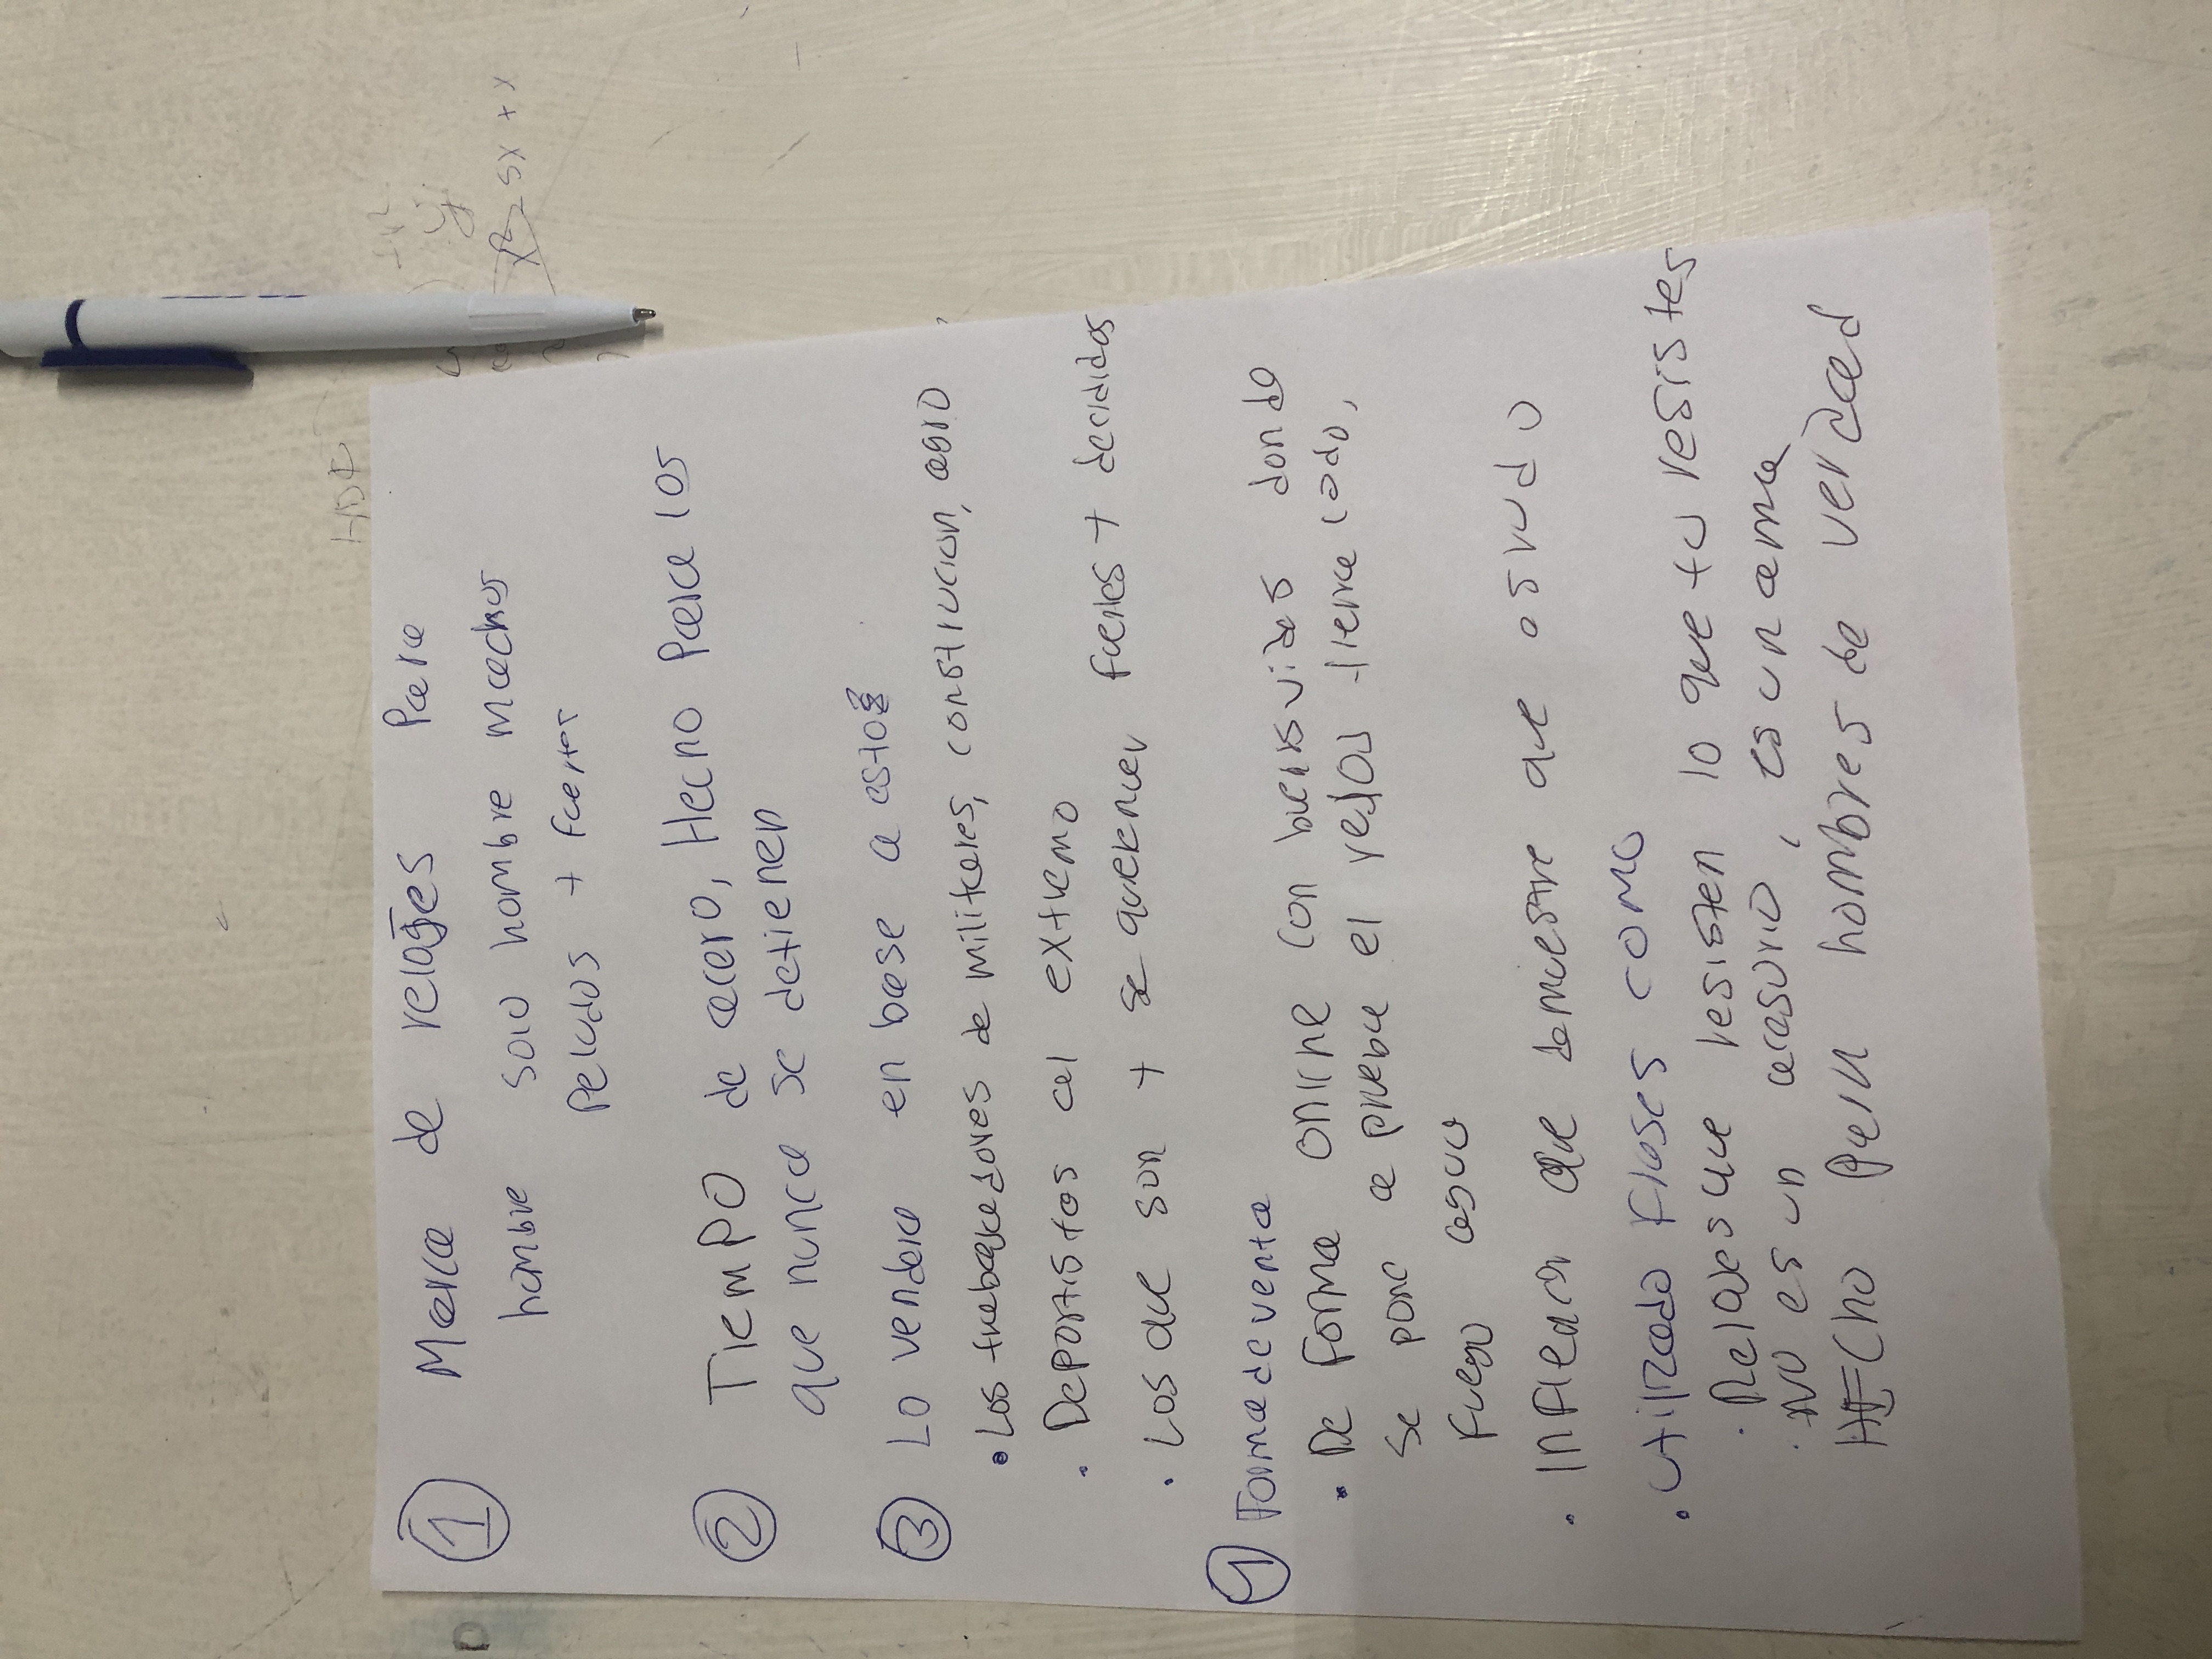 ① Marca de relojes Para
hombre solo hombre machos
Peludos + fuertes
② Tiempo de acero, Hecho Para los
que nunca se detienen
③ Lo vendera en base a estos
• Los trabajadores de militares, construcion, agro
• Deportistas al extremo
• Los que son + se queremer fuertes + decididos
④ Forma de venta
• De forma online con buenas vides donde
se pone a prueba el reloj tierra lodo,
Fuego agua
• Inflear que demuestre que os rudo
• Utilizado Frases como
• Relojes que resisten lo que tu resistes
• NO es un acesorio, es un arma
Hecho para hombres de verdad
D